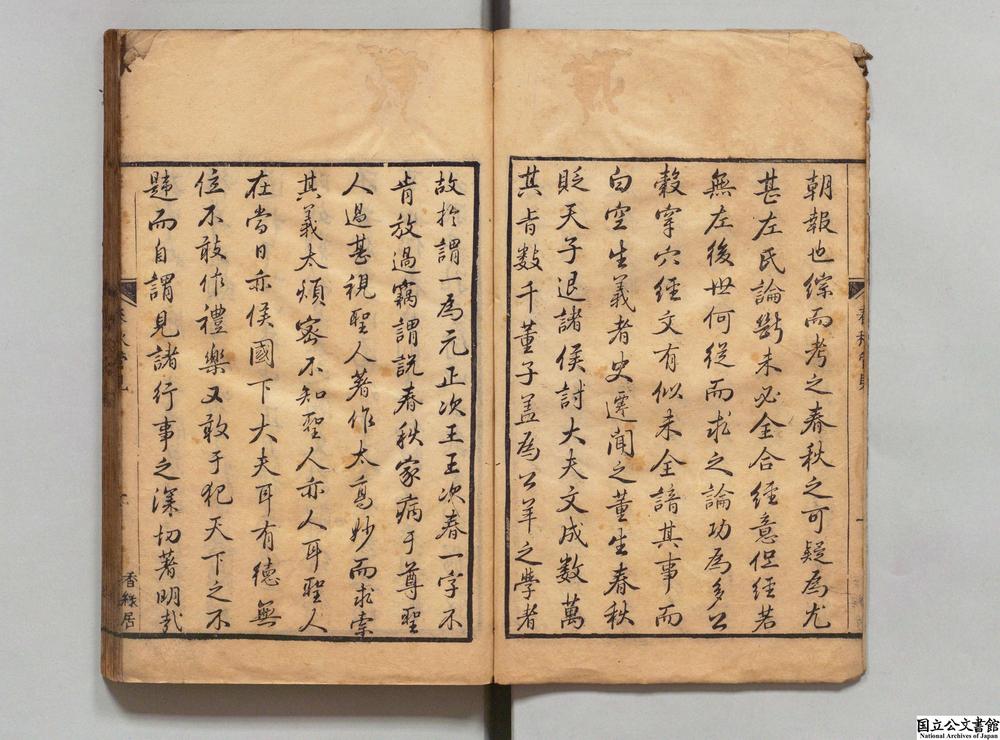 朝報也綜而考之春秋之可疑為尤
甚左氏論斷未必全合經意但經若
無左後世何從而求之論功為多公
穀穿穴經文有似未全諳其事而
白空生義者史遷聞之董生春秋
貶天子退諸侯討大夫文成數萬
其旨數千董子盖為公羊之學者
故於謂一為元正次王王次春一字不
肯放過竊謂說春秋家病于尊聖
人過甚視聖人著作太高妙而求索
其義太煩密不知聖人亦人耳聖人
在當日亦侯國下大夫耳有德無
位不敢作禮樂又敢于犯天下之不
韙而自謂見諸行事之深切著明哉
香綠居
国立公文書館
National Archives of Japan